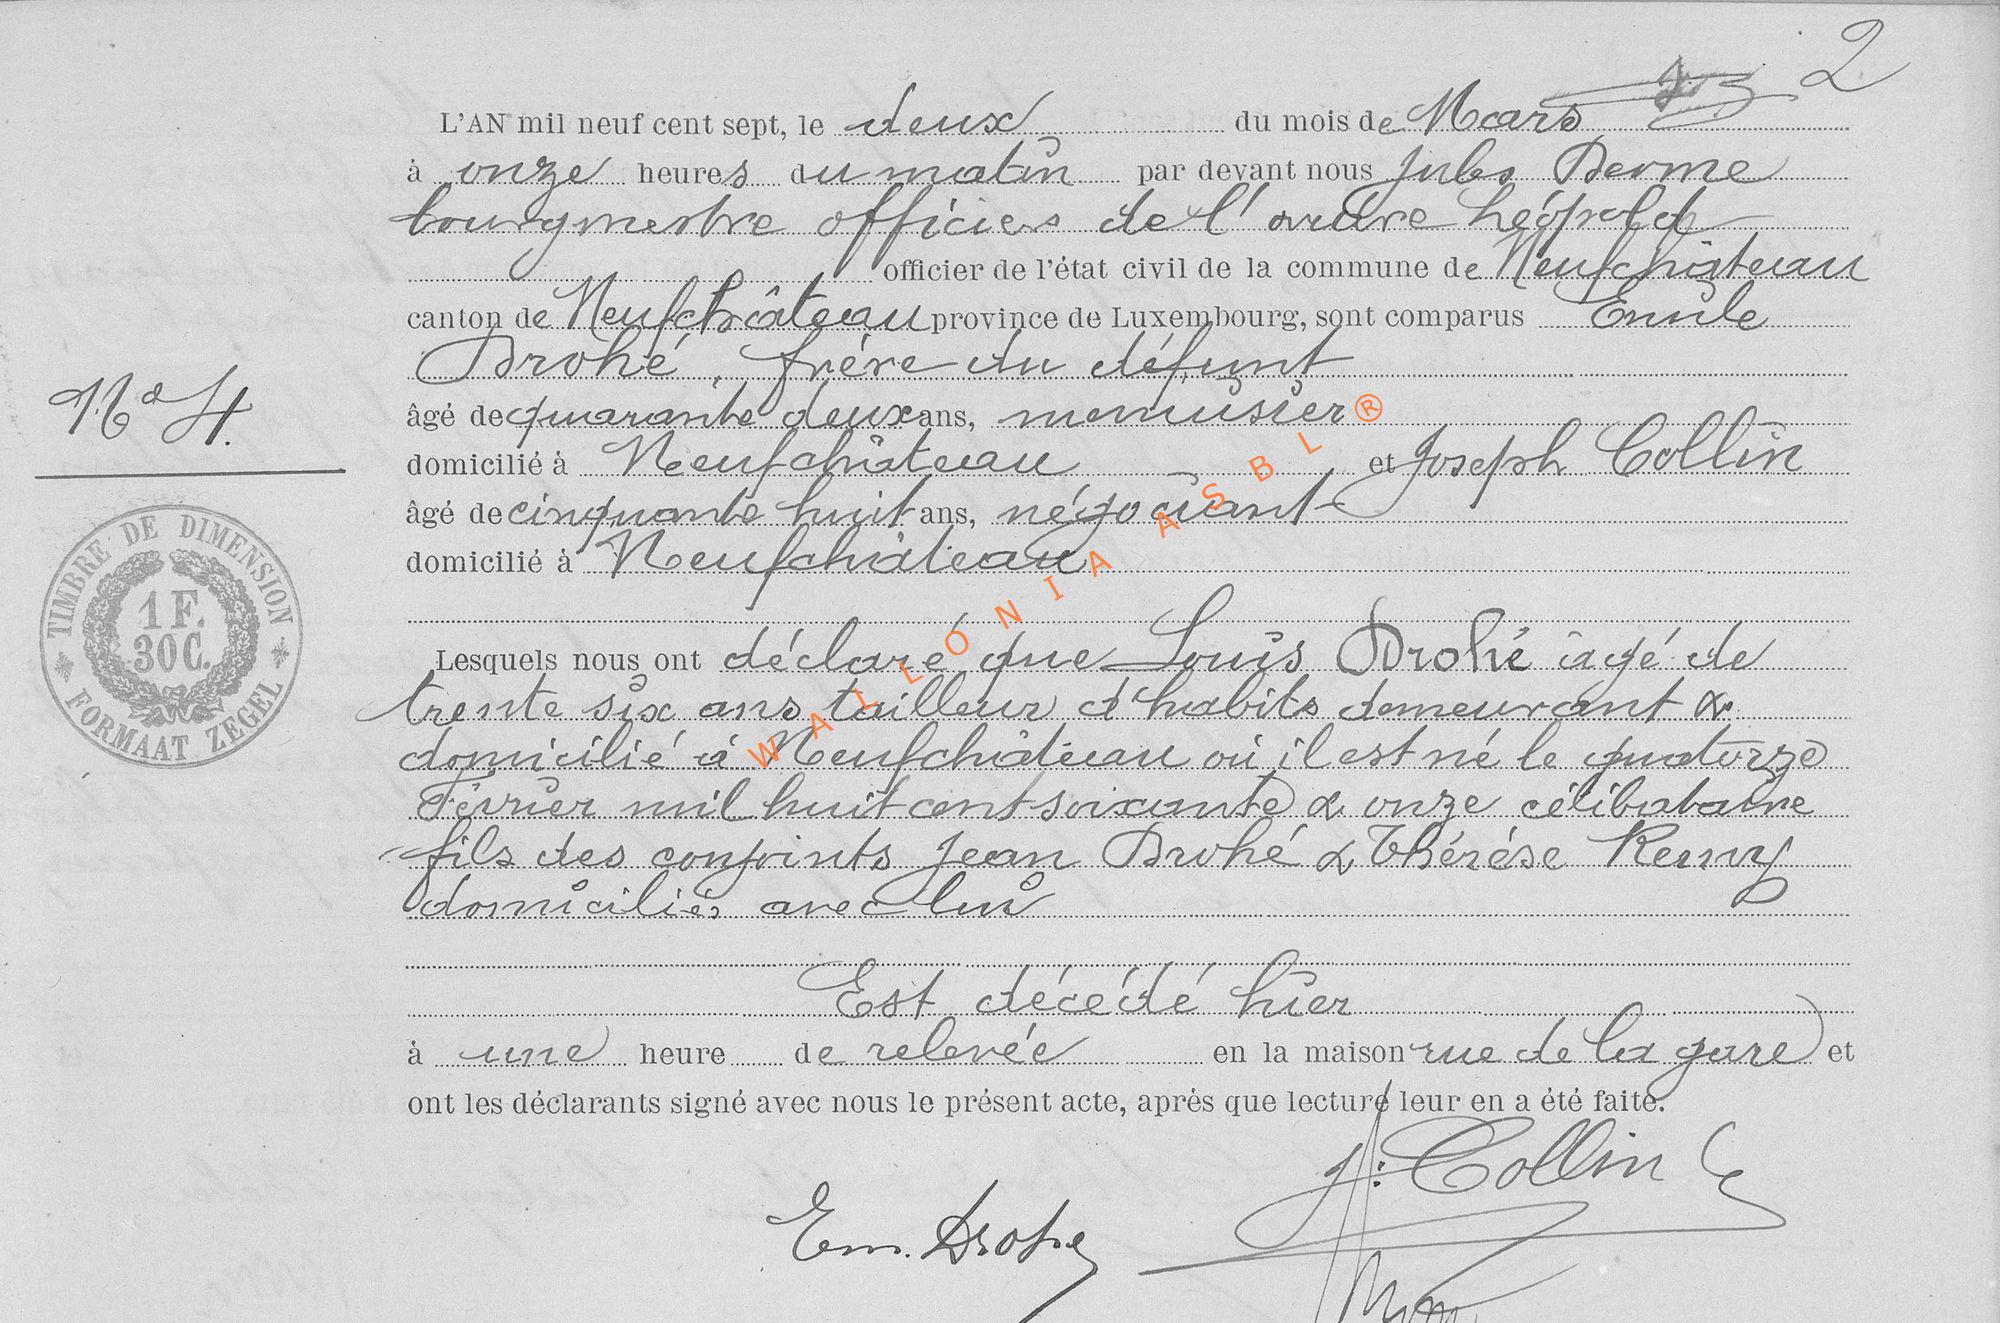 2
L'AN mil neuf cent sept, le deux du mois de Mars
à onze heures du matin par devant nous Jules
bourgmestre officier de l'ordre Léopold
officier de l'état civil de la commune de Neufchâteau
canton de Neufchâteau province de Luxembourg, sont comparus Emile
Drohé, frère du défunt
âgé de quarante deux ans, menuisier
domicilié à Neufchâteau et Joseph Collin
âgé de cinquante huit ans, négociant
domicilié à Neufchâteau
Lesquels nous ont déclaré que Louis Drohé âgé de
trente six ans tailleur d'habits demeurant &
domicilié à Neufchâteau où il est né le quatorze
Février mil huit cent soixante & onze célibataire
fils des conjoints Jean Drohé & Thérèse Remy
domiciliés avec lui
Est décédé hier
à une heure de relevée en la maison rue de la gare et
ont les déclarants signé avec nous le présent acte, après que lecture leur en a été faite.
J. Collin
Em. Drohé
No 4.
TIMBRE DE DIMENSION
1 F.
30 C.
FORMAAT ZEGEL
WALLONIA ASBL ®